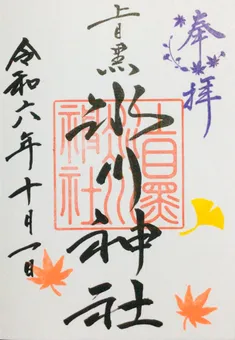 奉拝
上目黒
氷川神社
上目黒氷川神社
令和六年十月一日